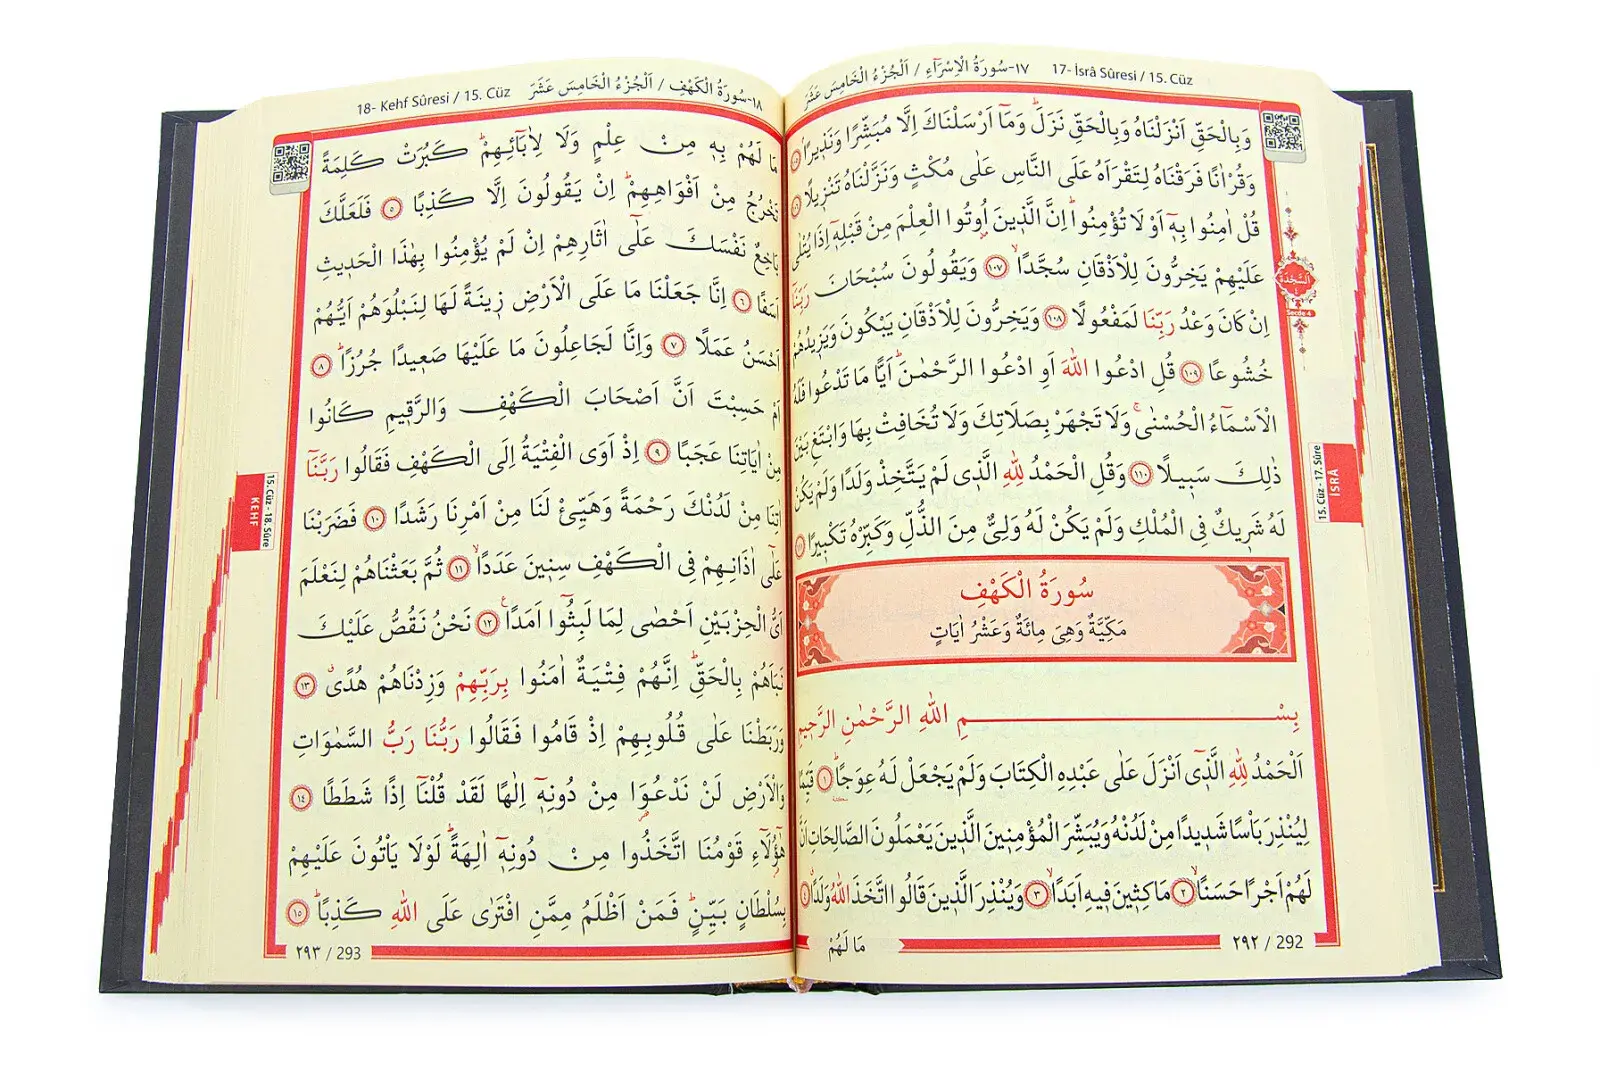 ١٧-سُورَةُ الْاِسْرَٓاءِ / اَلْجُزْءُ الْخَامِسَ عَشَرَ 17- İsrâ Sûresi / 15. Cüz
وَبِالْحَقِّ اَنْزَلْنَاهُ وَبِالْحَقِّ نَزَلَۜ وَمَٓا اَرْسَلْنَاكَ اِلَّا مُبَشِّرًا وَنَذِيرًاۢ ١٠٥
وَقُرْاٰنًا فَرَقْنَاهُ لِتَقْرَاَهُ عَلَى النَّاسِ عَلٰى مُكْثٍ وَنَزَّلْنَاهُ تَنْزِيلًا ١٠٦
قُلْ اٰمِنُوا بِهٖٓ اَوْ لَا تُؤْمِنُواۜ اِنَّ الَّذِينَ اُو۫تُوا الْعِلْمَ مِنْ قَبْلِهٖٓ اِذَا يُتْلٰى
عَلَيْهِمْ يَخِرُّونَ لِلْاَذْقَانِ سُجَّدًاۙ ١٠٧ وَيَقُولُونَ سُبْحَانَ رَبِّنَٓا
اِنْ كَانَ وَعْدُ رَبِّنَا لَمَفْعُولًا ١٠٨ وَيَخِرُّونَ لِلْاَذْقَانِ يَبْكُونَ وَيَزِيدُهُمْ
خُشُوعًا ١٠٩ قُلِ ادْعُوا اللّٰهَ اَوِ ادْعُوا الرَّحْمٰنَۜ اَيًّا مَا تَدْعُوا فَلَهُ
الْاَسْمَٓاءُ الْحُسْنٰىۚ وَلَا تَجْهَرْ بِصَلَاتِكَ وَلَا تُخَافِتْ بِهَا وَابْتَغِ بَيْنَ
ذٰلِكَ سَبِيلًا ١١٠ وَقُلِ الْحَمْدُ لِلّٰهِ الَّذِى لَمْ يَتَّخِذْ وَلَدًا وَلَمْ يَكُنْ
لَهُ شَرِيكٌ فِى الْمُلْكِ وَلَمْ يَكُنْ لَهُ وَلِىٌّ مِنَ الذُّلِّ وَكَبِّرْهُ تَكْبِيرًا ١١١
سُورَةُ الْكَهْفِ
مَكِّيَّةٌ وَهِىَ مِائَةٌ وَعَشْرُ اٰيَاتٍ
بِسْمِ اللّٰهِ الرَّحْمٰنِ الرَّحِيمِ
اَلْحَمْدُ لِلّٰهِ الَّذِٓى اَنْزَلَ عَلٰى عَبْدِهِ الْكِتَابَ وَلَمْ يَجْعَلْ لَهُ عِوَجًاۜ ١ قَيِّمًا
لِيُنْذِرَ بَأْسًا شَدِيدًا مِنْ لَدُنْهُ وَيُبَشِّرَ الْمُؤْمِنِينَ الَّذِينَ يَعْمَلُونَ الصَّالِحَاتِ اَنَّ
لَهُمْ اَجْرًا حَسَنًاۙ ٢ مَاكِثِينَ فِيهِ اَبَدًاۙ ٣ وَيُنْذِرَ الَّذِينَ قَالُوا اتَّخَذَ اللّٰهُ وَلَدًاۗ ٤
مَا لَهُمْ
٢٩٢ / 292
السَّجْدَة
Secde 4
15. Cüz - 17. Sûre
İSRÂ
١٨-سُورَةُ الْكَهْفِ / اَلْجُزْءُ الْخَامِسَ عَشَرَ 18- Kehf Sûresi / 15. Cüz
مَا لَهُمْ بِهٖ مِنْ عِلْمٍ وَلَا لِاٰبَٓائِهِمْۜ كَبُرَتْ كَلِمَةً
تَخْرُجُ مِنْ اَفْوَاهِهِمْۜ اِنْ يَقُولُونَ اِلَّا كَذِبًا ٥ فَلَعَلَّكَ
بَاخِعٌ نَفْسَكَ عَلٰٓى اٰثَارِهِمْ اِنْ لَمْ يُؤْمِنُوا بِهٰذَا الْحَدِيثِ
اَسَفًا ٦ اِنَّا جَعَلْنَا مَا عَلَى الْاَرْضِ زِينَةً لَهَا لِنَبْلُوَهُمْ اَيُّهُمْ
اَحْسَنُ عَمَلًا ٧ وَاِنَّا لَجَاعِلُونَ مَا عَلَيْهَا صَعِيدًا جُرُزًاۜ ٨
اَمْ حَسِبْتَ اَنَّ اَصْحَابَ الْكَهْفِ وَالرَّقِيمِ كَانُوا
مِنْ اٰيَاتِنَا عَجَبًا ٩ اِذْ اَوَى الْفِتْيَةُ اِلَى الْكَهْفِ فَقَالُوا رَبَّنَٓا
اٰتِنَا مِنْ لَدُنْكَ رَحْمَةً وَهَيِّئْ لَنَا مِنْ اَمْرِنَا رَشَدًا ١٠ فَضَرَبْنَا
عَلٰٓى اٰذَانِهِمْ فِى الْكَهْفِ سِنِينَ عَدَدًاۙ ١١ ثُمَّ بَعَثْنَاهُمْ لِنَعْلَمَ
اَىُّ الْحِزْبَيْنِ اَحْصٰى لِمَا لَبِثُٓوا اَمَدًاۚ ١٢ نَحْنُ نَقُصُّ عَلَيْكَ
نَبَاَهُمْ بِالْحَقِّۜ اِنَّهُمْ فِتْيَةٌ اٰمَنُوا بِرَبِّهِمْ وَزِدْنَاهُمْ هُدًىۗ ١٣
وَرَبَطْنَا عَلٰى قُلُوبِهِمْ اِذْ قَامُوا فَقَالُوا رَبُّنَا رَبُّ السَّمٰوَاتِ
وَالْاَرْضِ لَنْ نَدْعُوَ۬ا مِنْ دُونِهٖٓ اِلٰهًا لَقَدْ قُلْنَٓا اِذًا شَطَطًا ١٤
هٰٓؤُ۬لَٓاءِ قَوْمُنَا اتَّخَذُوا مِنْ دُونِهٖٓ اٰلِهَةًۜ لَوْلَا يَأْتُونَ عَلَيْهِمْ
بِسُلْطَانٍ بَيِّنٍۜ فَمَنْ اَظْلَمُ مِمَّنِ افْتَرٰى عَلَى اللّٰهِ كَذِبًاۜ ١٥
٢٩٣ / 293
15. Cüz - 18. Sûre
KEHF